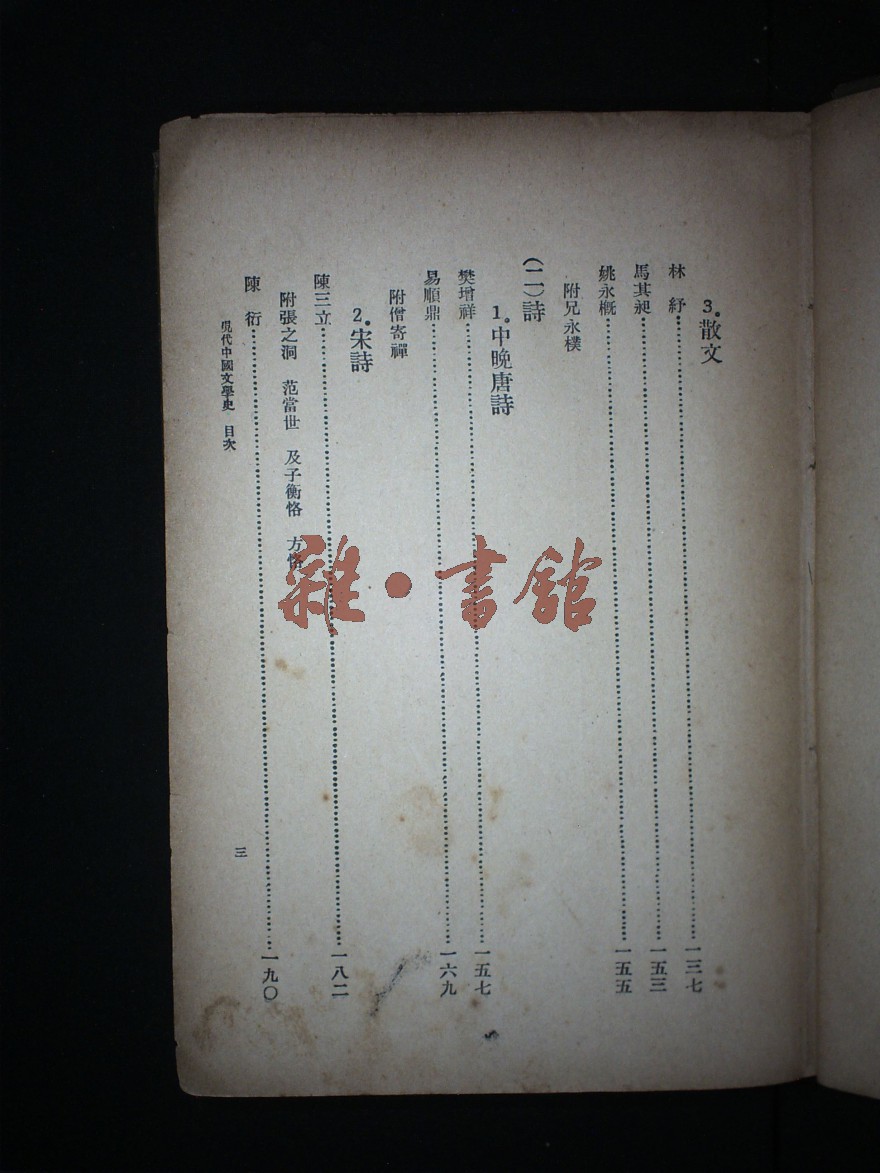 3.散文
林 紓……一三七
馬其昶……一五三
姚永概……一五五
附兄永樸
(二)詩
1.中晚唐詩
樊增祥……一五七
易順鼎……一六九
附僧寄禪
2.宋詩
陳三立……一八二
附張之洞 范當世 及子衡恪 方恪
陳 衍……一九〇
現代中國文學史 目次
三
雜·書館